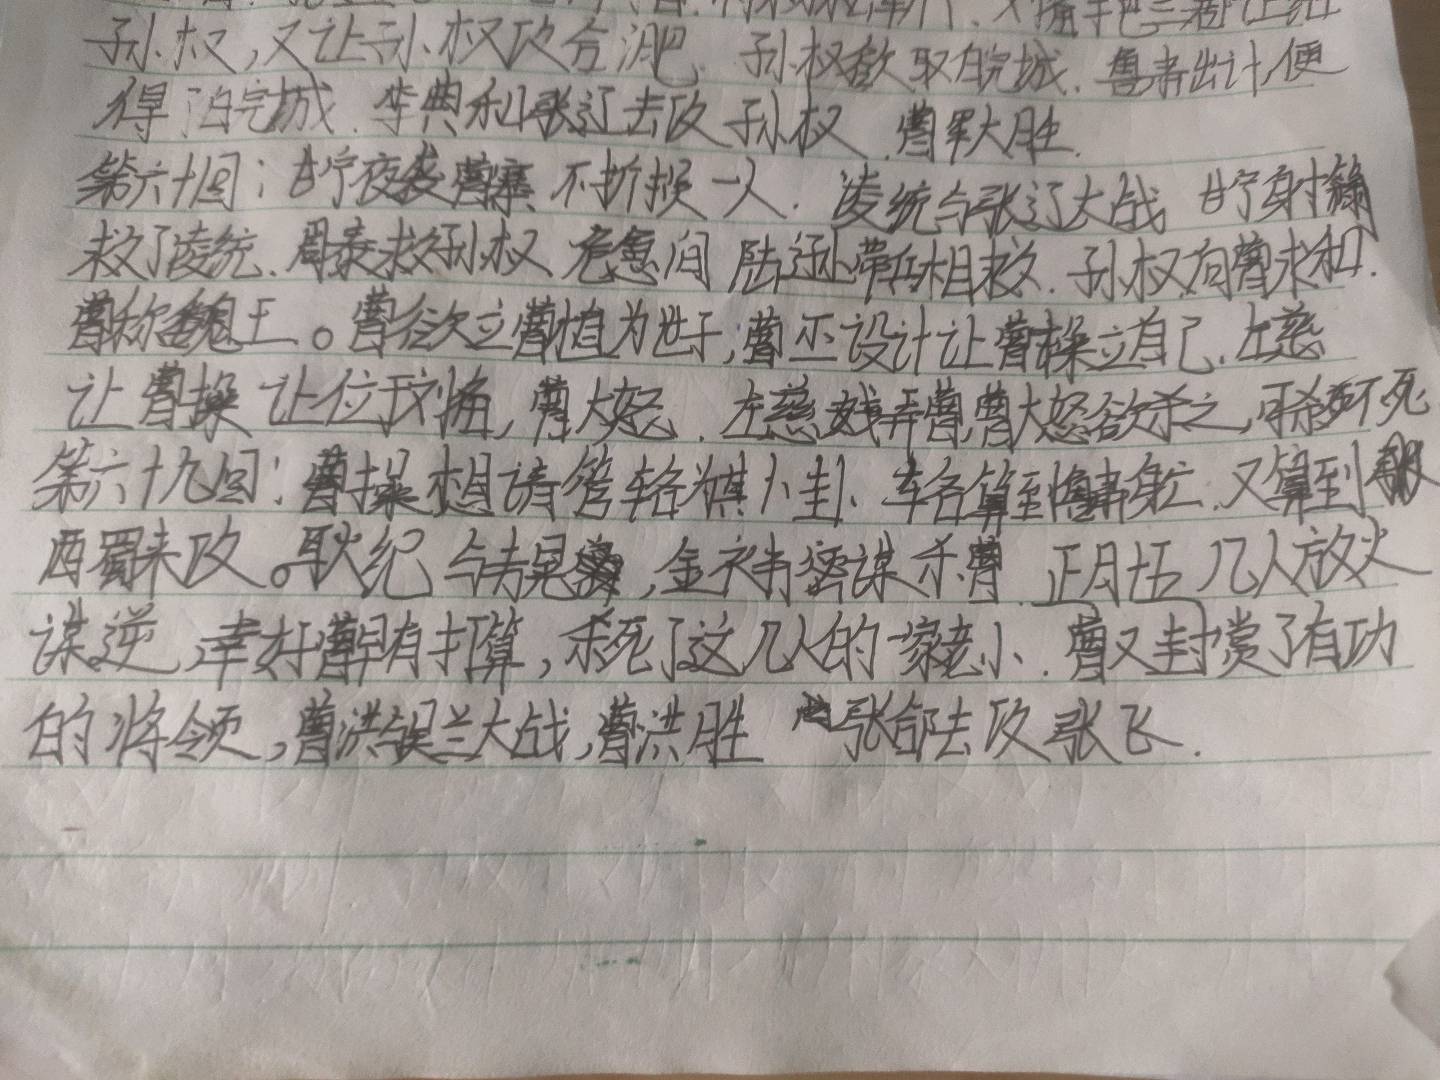 孙权,又让孙权攻合淝.孙权欲取皖城.鲁肃出计,便
得了皖城.李典和张辽去攻孙权.曹军大胜.
第六十回:甘宁夜袭曹寨不折损一人.凌统与张辽大战 甘宁射箭
救了凌统.周泰救孙权 危急间 陆逊带兵相救.孙权向曹求和.
曹称魏王。曹欲立曹植为世子,曹丕设计让曹操立自己.左慈
让曹操让位于刘备,曹大怒.左慈戏弄曹,曹大怒欲杀之,可杀不死
第六十九回:曹操想请管辂為其卜卦、辂算到鲁肃身亡.又算到
西蜀来攻。耿纪与韦晃,金祎密谋杀曹.正月十五几人放火
谋逆,幸好曹早有打算,杀死了这几人的一家老小.曹又封赏了有功
的将领,曹洪与吴兰大战,曹洪胜 张郃去攻张飞.